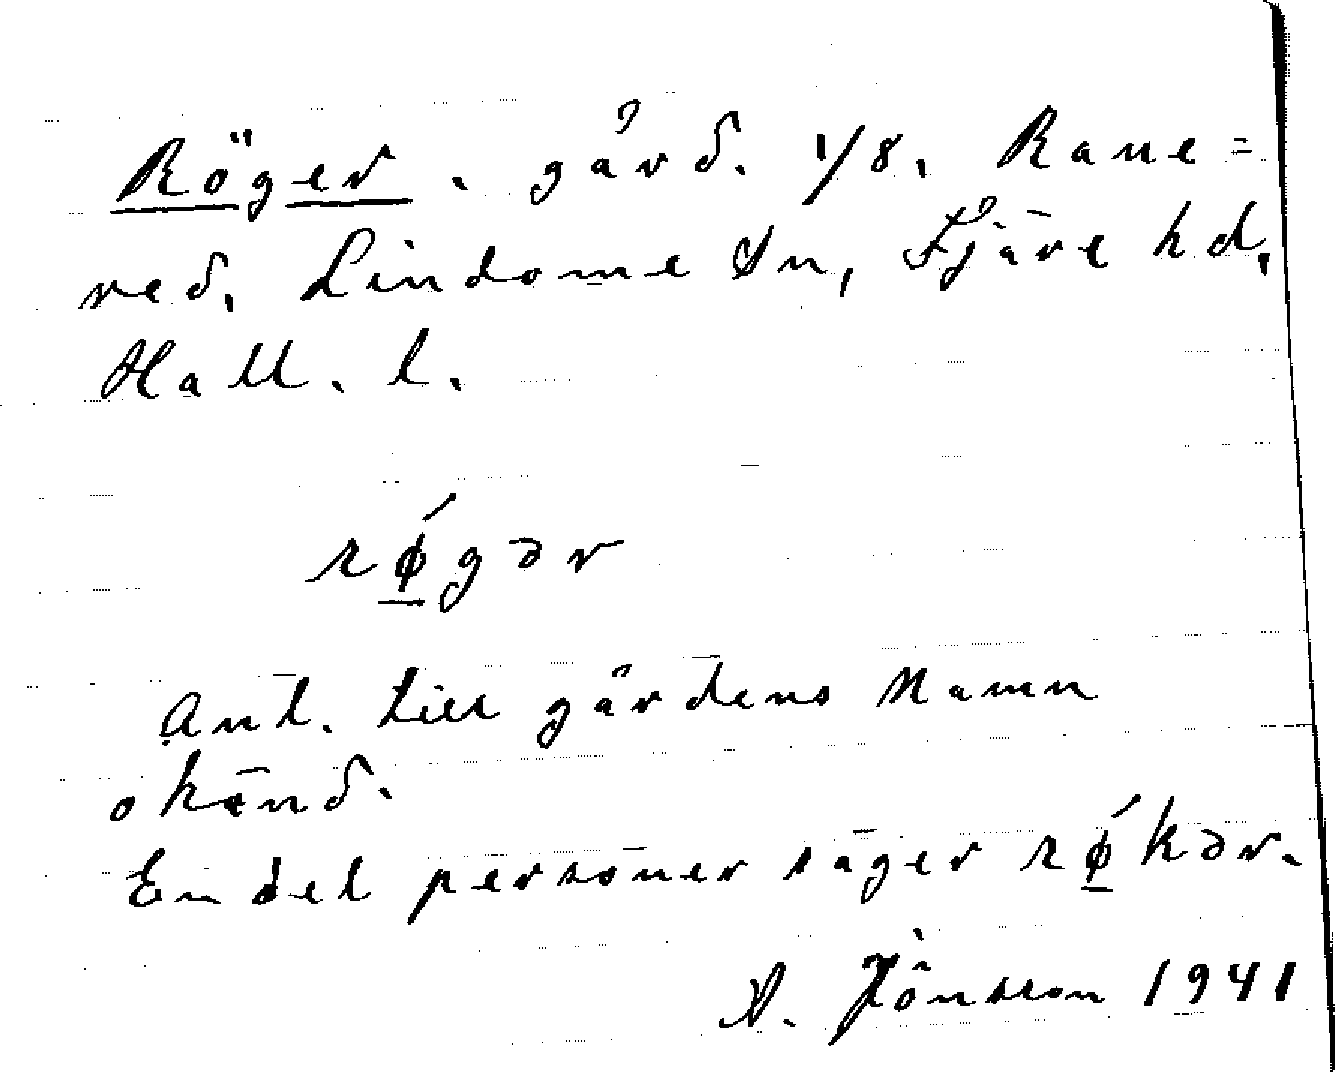 Röger. gård. 1/8. Rane=
red. Lindome sn, Fjäre hd,
Hall. l.
rǿgər
Anl. till gårdens namn
okänd.
En del personer säger rǿkər.
A. Jönsson 1941